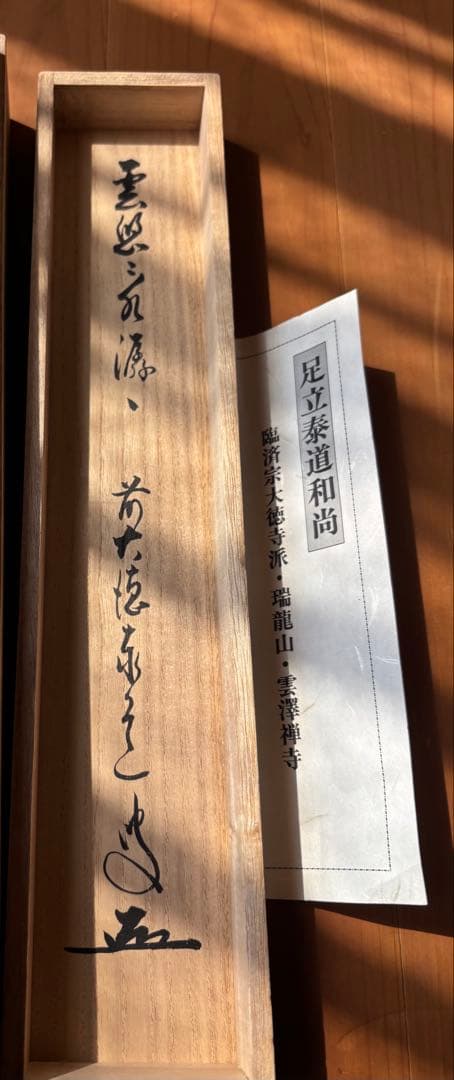 雲悠々水潺々　前大徳泰道
足立泰道和尚
臨済宗大徳寺派・瑞龍山・雲澤禅寺